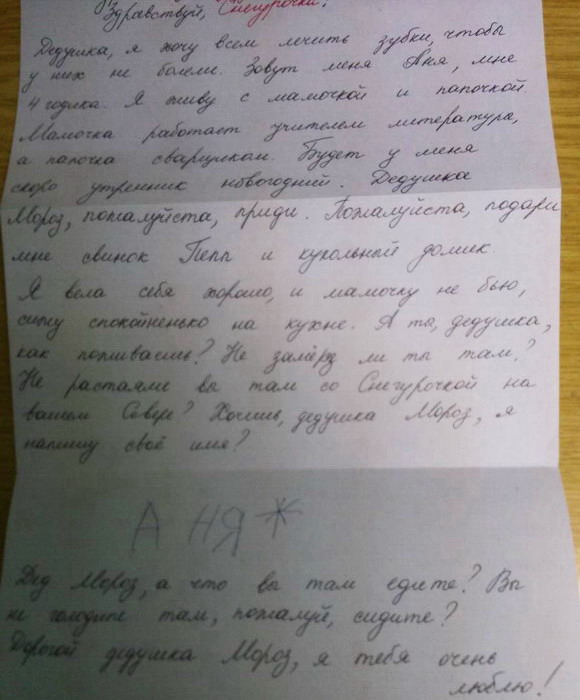 Здравствуй, Снегурочка!
Дедушка, я хочу всем лечить зубки, чтобы
у них не болели. Зовут меня Аня, мне
4 годика. Я живу с мамочкой и папочкой.
Мамочка работает учителем литература,
а папочка сварщиком. Будет у меня
скоро утренник новогодний. Дедушка
Мороз, пожалуйста, приди. Пожалуйста, подари
мне свинок Пепп и кукольный домик.
Я вела себя хорошо, и мамочку не бью,
сижу спокойненько на кухне. А ты, дедушка,
как поживаешь? Не замёрз ли ты там?
Не растаяли вы там со Снегурочкой на
вашем Севере? Хочешь, дедушка Мороз, я
напишу своё имя?
АНЯ*
Дед Мороз, а что вы там едите? Вы
не голодные там, пожалуй, сидите?
Дорогой дедушка Мороз, я тебя очень
люблю!